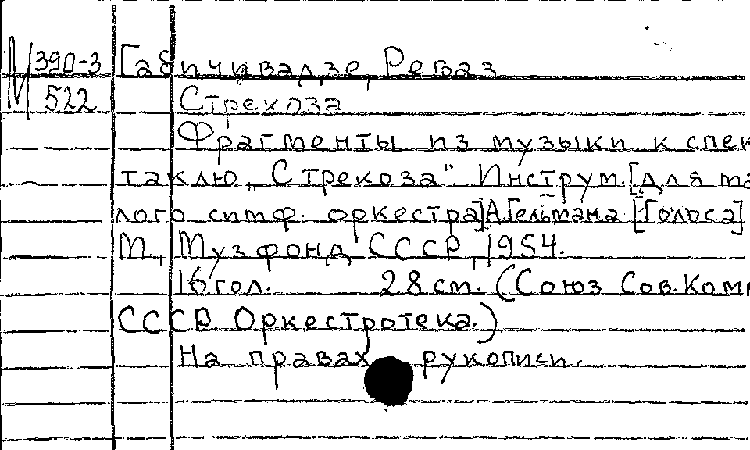 М 390-3 Габичвадзе, Реваз
522 Стрекоза
Фрагменты из музыки к спек
таклю „Стрекоза". Инструм. [для ма
лого симф. оркестра] А.Гельмана. [Голоса]
М., Музфонд СССР, 1954.
16 гол. 28 см. (Союз Сов. Комп
СССР. Оркестротека.)
На правах рукописи.